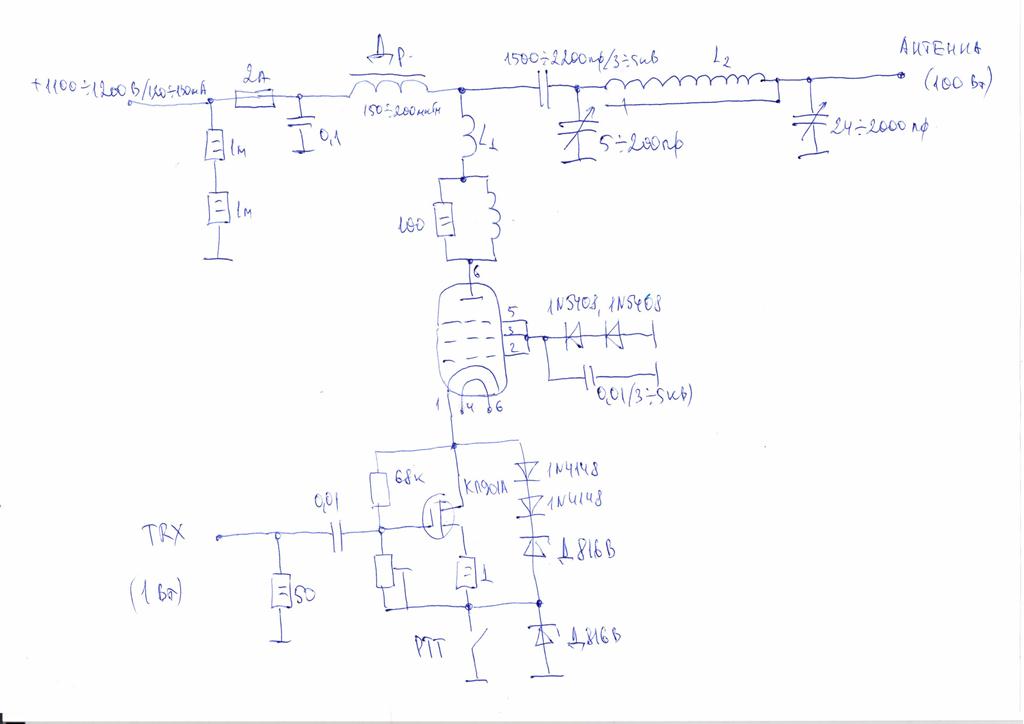 +1100÷1200В/120÷150мА
2А
Др.
150÷200мкГн
1500÷2200пф/3÷5кв
L2
АНТЕННА
(100 Вт)
1м
0,1
L1
5÷200пф
24÷2000пф
1м
100
6
5
3
2
1N5408, 1N5408
0,01/3÷5кв)
1
4
6
68к
КП901А
1N4148
1N4148
0,01
TRX
Д816В
(1 Вт)
50
1
PTT
Д816В